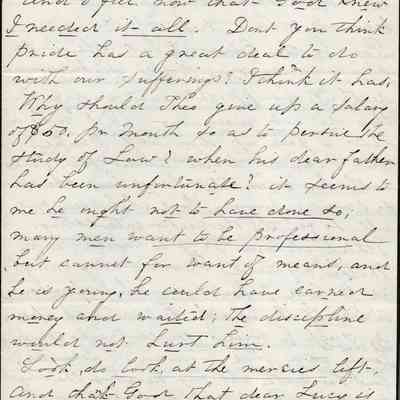 and I feel now that God knew
I needed it all. Dont you think
pride has a great deal to do
with our sufferings? I think it has,
Why should Theo give up a salary
of $50. pr month so as to persue the
study of Law? when his dear father
has been unfortunate? it seems to
me he ought not to have done so;
many men want to be professional
but cannot for want of means, and
he is young, he could have earned
money and waited; the discipline
would not hurt him.
Look, do look, at the mercies left,
and thank God that dear Lucy is